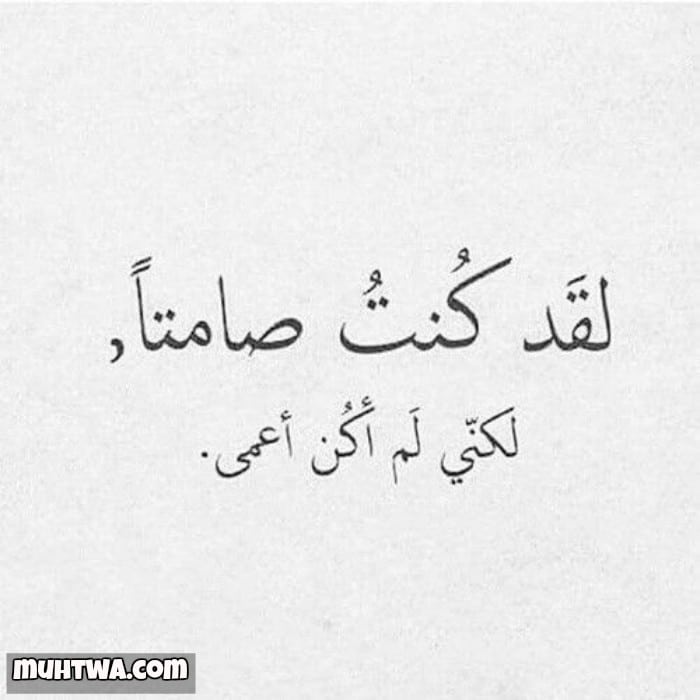 لقَد كُنتُ صامتاً,
لَكنّي لَم أَكُن أعمى.
MUHTWA.COM